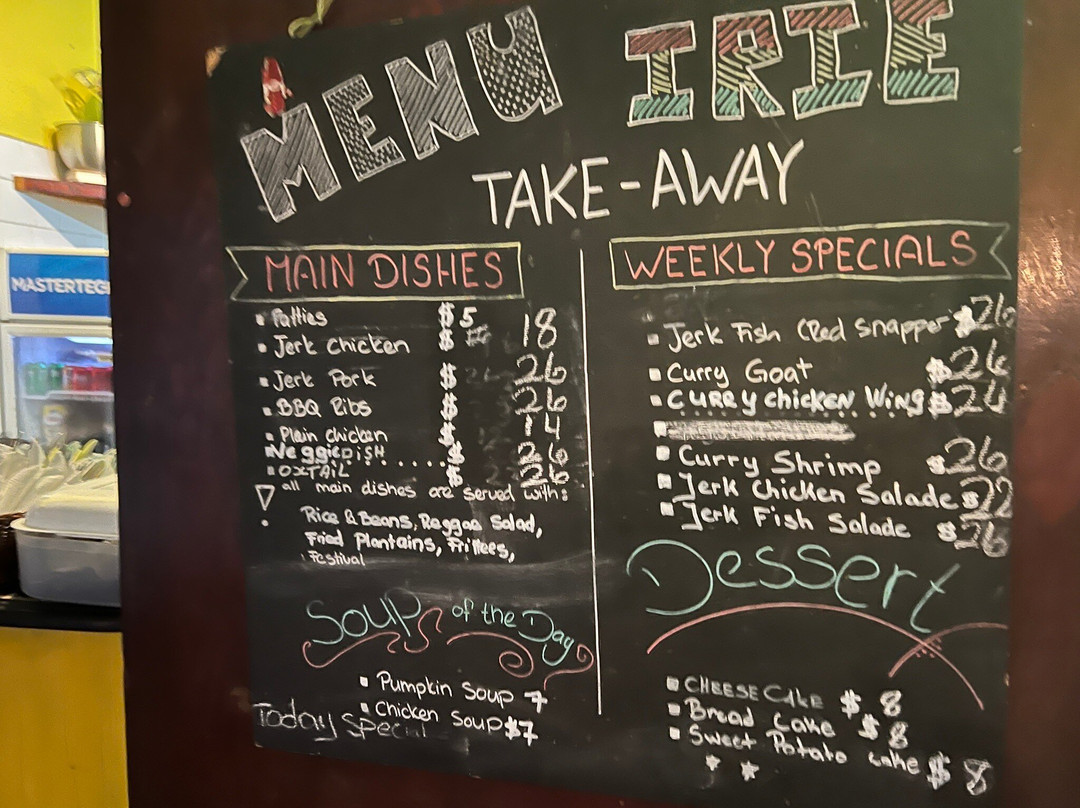 MENU IRIE
TAKE-AWAY
MASTERTEG
MAIN DISHES
Patties $5
Jerk chicken $ 18
Jerk Pork $ 26
BBQ Ribs $ 26
Plain chicken $ 14
Veggie DISH ...... $ 26
OXTAIL $ 26
all main dishes are served with:
Rice & Beans, Reggae Salad,
Fried Plantains, Frittees,
Festival
Soup of the Day
Pumpkin Soup 7
Chicken Soup $7
Today Special
WEEKLY SPECIALS
Jerk Fish (Red snapper $26
Curry Goat $26
CURRY chicken Wings $24
Curry Shrimp $26
Jerk Chicken Salade $22
Jerk Fish Salade $26
Dessert
CHEESE CAKE $8
Bread Cake $8
Sweet Potato cake $8